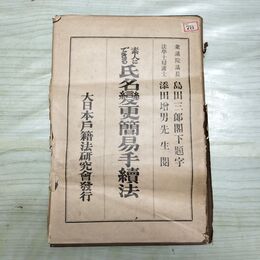 衆議院議長 島田三郎閣下題字
法學士辯護士 添田增男先生閲
素人にできる 氏名變更簡易手續法
大日本戶籍法研究會發行